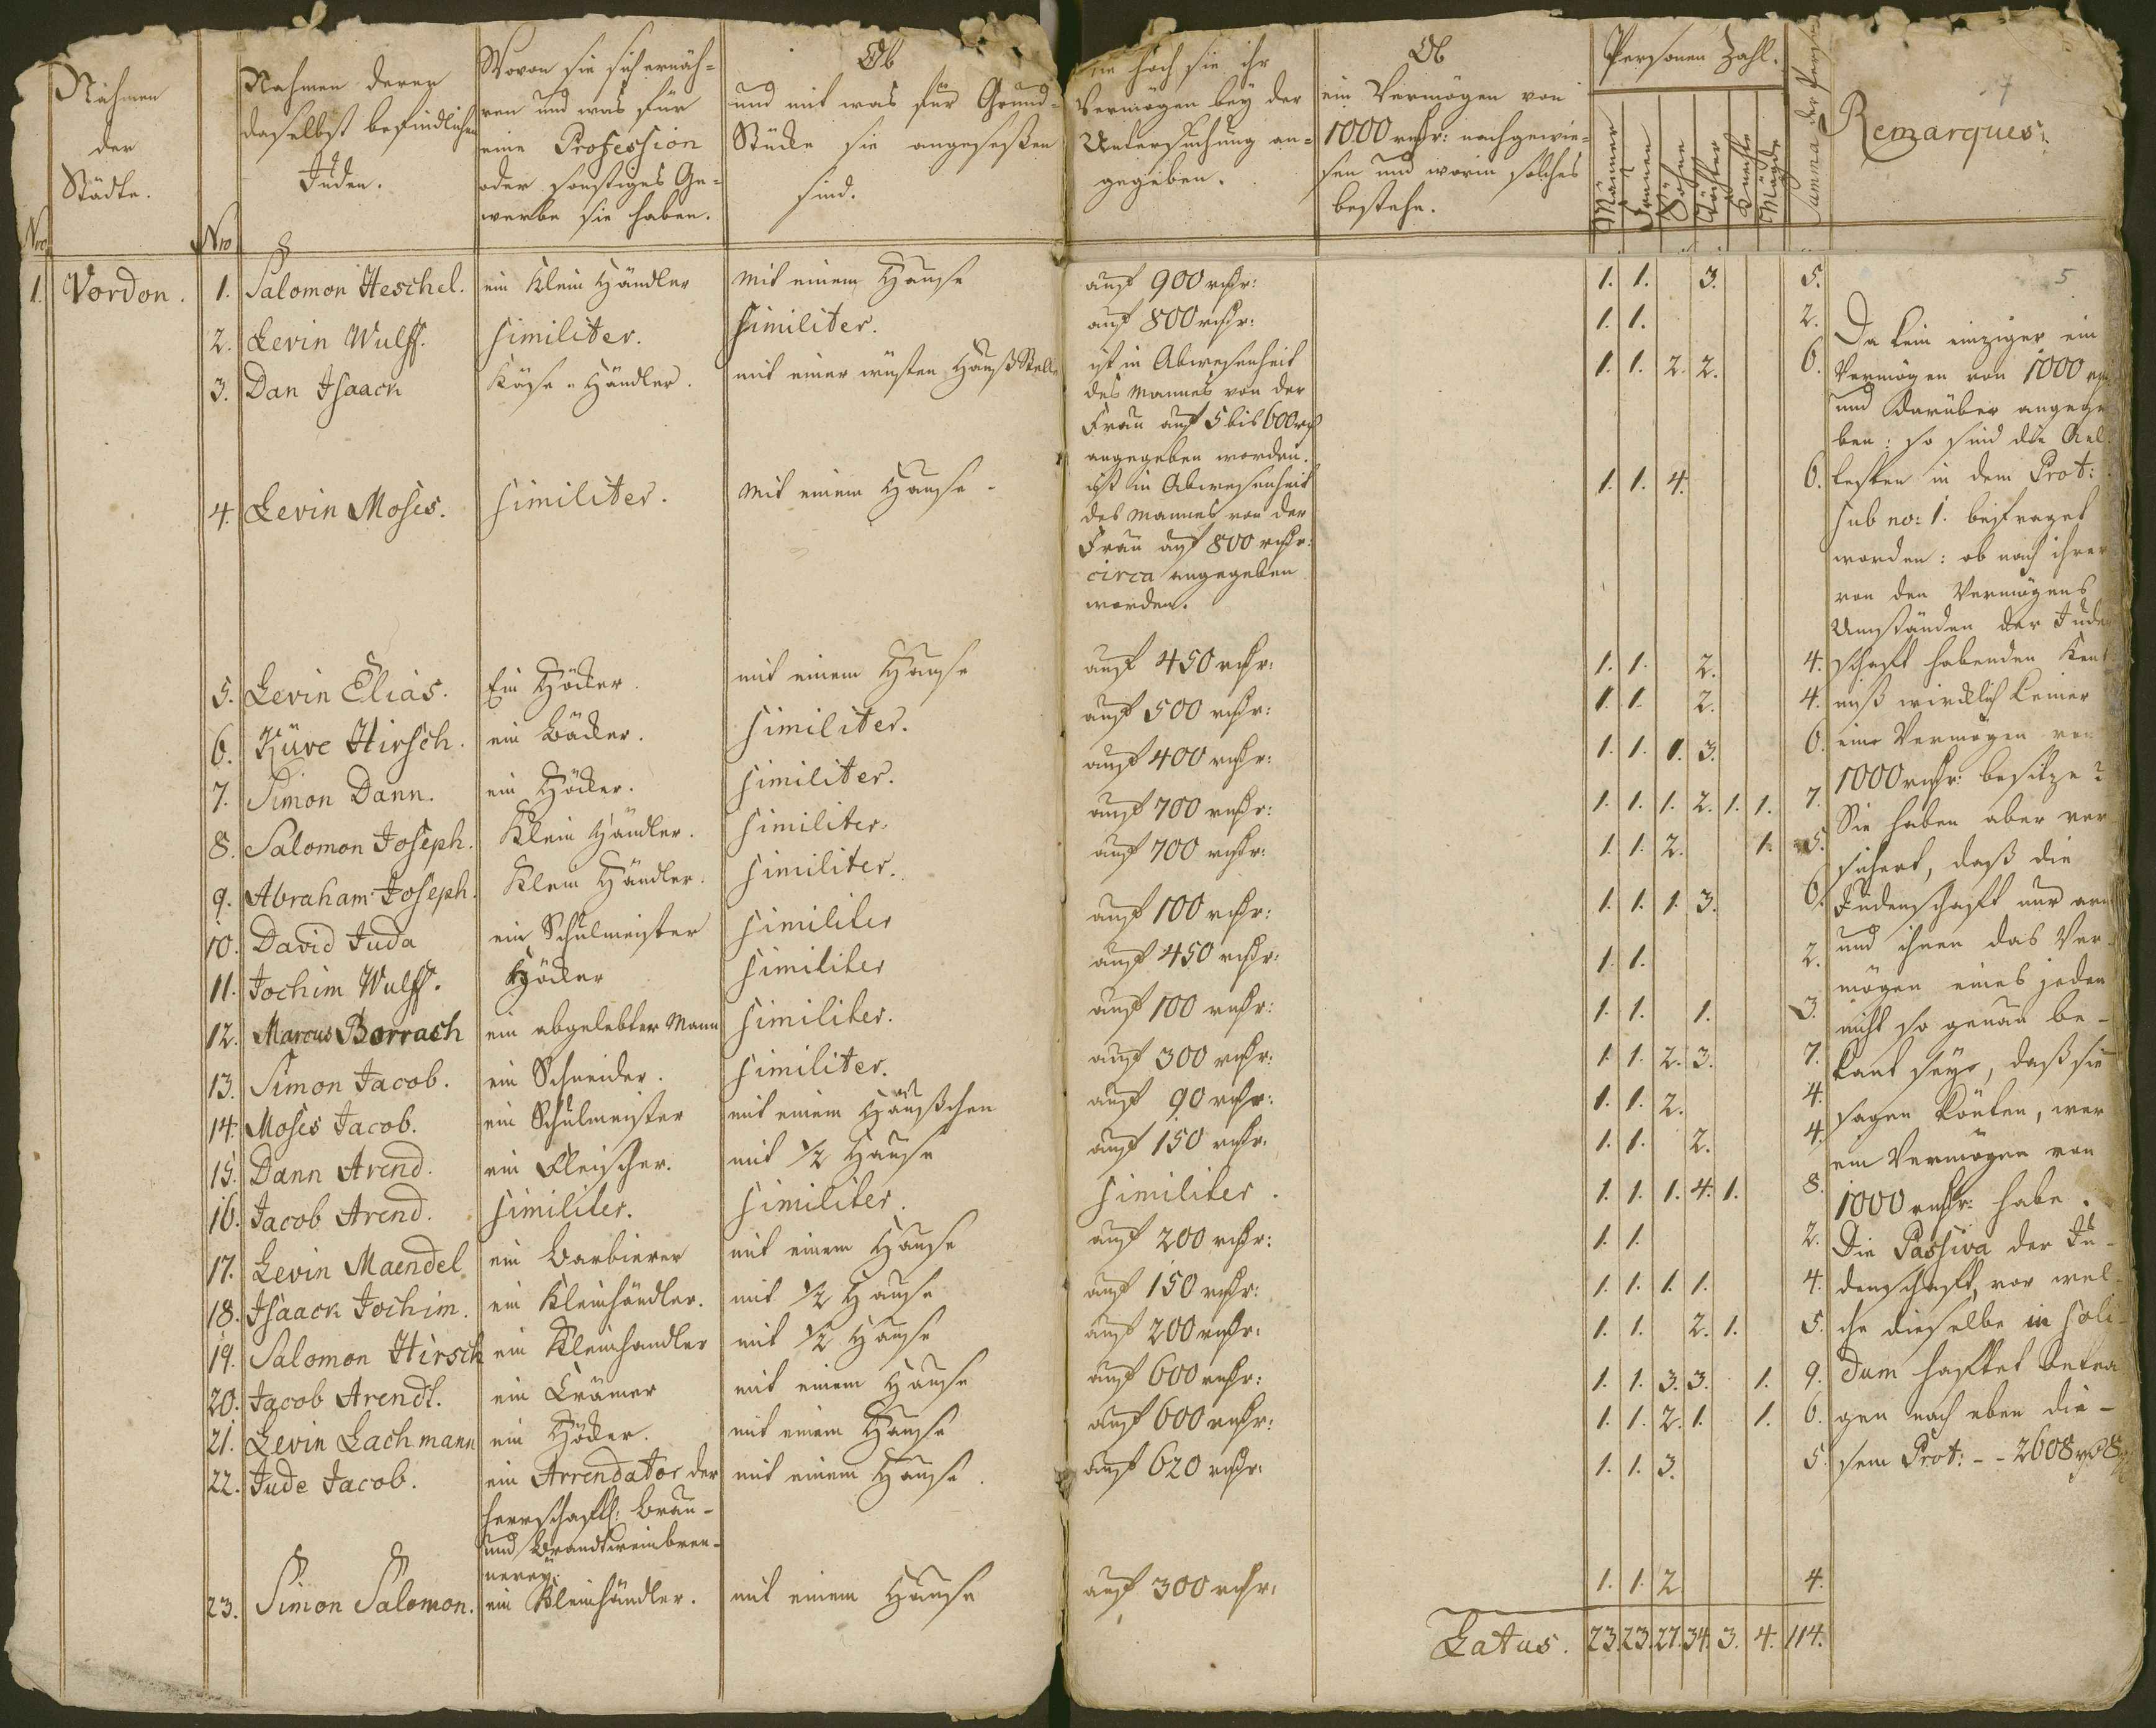 Nro
Nahmen
der
Städte.
Nro
Nahmen derer
daselbst befindlichen
Juden.
Wovon sie sich ernäh-
ren und was für
eine Profession
oder sonstiges Ge-
werbe sie haben.
Ob
und mit was für Grund-
Stücke sie angeseßen
sind.
wie hoch sie ihr
Vermögen bey der
Untersuchung an-
gegeben.
Ob
ein Vermögen von
1000 rthlr: nachgewie-
sen und worin solches
bestehe.
Personen Zahl.
Männer
Frauen
Söhne
Töchter
Knechte
Mägde
Summa der Persohn
Remarques.
7
5
1. Vordon. 1. Salomon Heschel. ein Klein Händler mit einem Hause auf 900 rthlr: 1. 1. 3. 5.
2. Levin Wulff. similiter. similiter. auf 800 rthlr: 1. 1. 2.
3. Dan Isaack Käse-Händler. mit einer wüsten Hauß Stelle ist in Abwesenheit 1. 1. 2. 2. 6.
des Mannes von der
Frau auf 5 bis 600 rth
angegeben worden.
4. Levin Moses. similiter. mit einem Hause. ist in Abwesenheit 1. 1. 4. 6.
des Mannes von der
Frau auf 800 rthlr:
circa angegeben
worden.
5. Levin Elias. Ein Höcker. mit einem Hause auf 450 rthlr: 1. 1. 2. 4.
6. Küve Hirsch. ein Bäcker. similiter. auf 500 rthlr: 1. 1. 2. 4.
7. Simon Dann. ein Höcker. similiter. auf 400 rthlr: 1. 1. 1. 3. 6.
8. Salomon Joseph. Klein Händler. similiter. auf 700 rthlr: 1. 1. 1. 2. 1. 1. 7.
9. Abraham Joseph. Klein Händler. similiter. auf 700 rthlr: 1. 1. 2. 1. 5.
10. David Juda ein Schulmeister similiter auf 100 rthlr: 1. 1. 1. 3. 6.
11. Jochim Wulff. Höcker similiter auf 450 rthlr: 1. 1. 2.
12. Marcus Borrach ein abgelebter Mann similiter. auf 100 rthlr: 1. 1. 1. 3.
13. Simon Jacob. ein Schneider. similiter. auf 300 rthlr: 1. 1. 2. 3. 7.
14. Moses Jacob. ein Schulmeister mit einem Häußchen auf 90 rthlr: 1. 1. 2. 4.
15. Dann Arend. ein Fleischer. mit 1/2 Hause auf 150 rthlr: 1. 1. 2. 4.
16. Jacob Arend. similiter. similiter. similiter. 1. 1. 1. 4. 1. 8.
17. Levin Maendel ein Barbierer mit einem Hause auf 200 rthlr: 1. 1. 2.
18. Isaack Jochim. ein Kleinhändler. mit 1/2 Hause auf 150 rthlr: 1. 1. 1. 1. 4.
19. Salomon Hirsch ein Kleinhandler mit 1/2 Hause auf 200 rthlr: 1. 1. 2. 1. 5.
20. Jacob Arendt. ein Crämer mit einem Hause auf 600 rthlr: 1. 1. 3. 3. 1. 9.
21. Levin Lachmann ein Höcker. mit einem Hause auf 600 rthlr: 1. 1. 2. 1. 1. 6.
22. Jude Jacob. ein Arrendator der mit einem Hause. auf 620 rthlr: 1. 1. 3. 5.
herrschaftl: Brau-
und Brandtweinbren-
nerey.
23. Simon Salomon. ein Kleinhändler. mit einem Hause auf 300 rthlr: 1. 1. 2 4.
Latus. 23. 23. 27. 34. 3. 4. 114.
Da kein einziger ein
Vermögen von 1000 rth
und darüber angege
ben: so sind die Ael-
testen in dem Prot:
sub no: 1. befraget
worden: ob nach ihrer
von den Vermögens
Umständen der Juden
schaft habenden Kent
niß wircklich keiner
ein Vermögen von
1000 rthlr: besitze?
Sie haben aber ver
sichert, daß die
Judenschaft nur arm
und ihnen das Ver-
mögen eines jeden
nicht so genau be-
kant seye, daß sie
sagen könten, wer
ein Vermögen von
1000 rthlr: habe.
Die Passiva der Ju-
denschaft, vor wel-
che dieselbe in soli-
dum hafftet betra
gen nach eben die-
sem Prot: -- 2608 rth 8